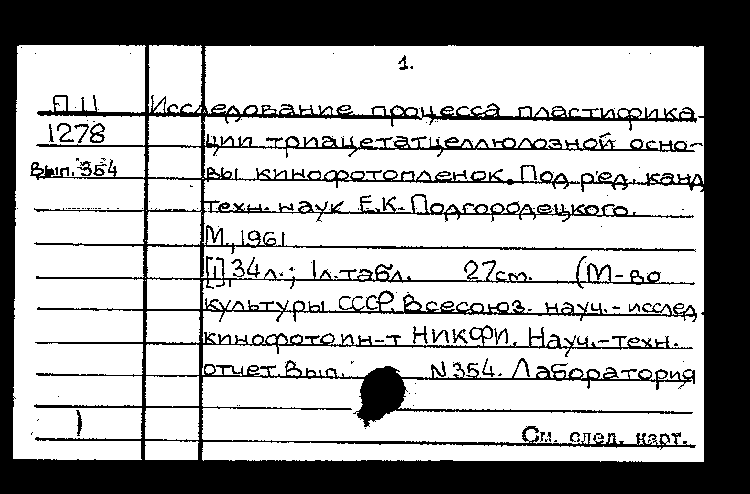 1.
П 11 Исследование процесса пластифика-
1278 ции триацетатцеллюлозной осно-
Вып. 354 вы кинофотопленок. Под ред. канд
техн. наук Е.К. Подгородецкого.
М., 1961
[1], 34 л.; 1 л. табл. 27 cm. (М-во
культуры СССР. Всесоюз. науч.-исслед.
кинофотоин-т НИКФИ. Науч.-техн.
отчет. Вып. N 354. Лаборатория
См. след. карт.